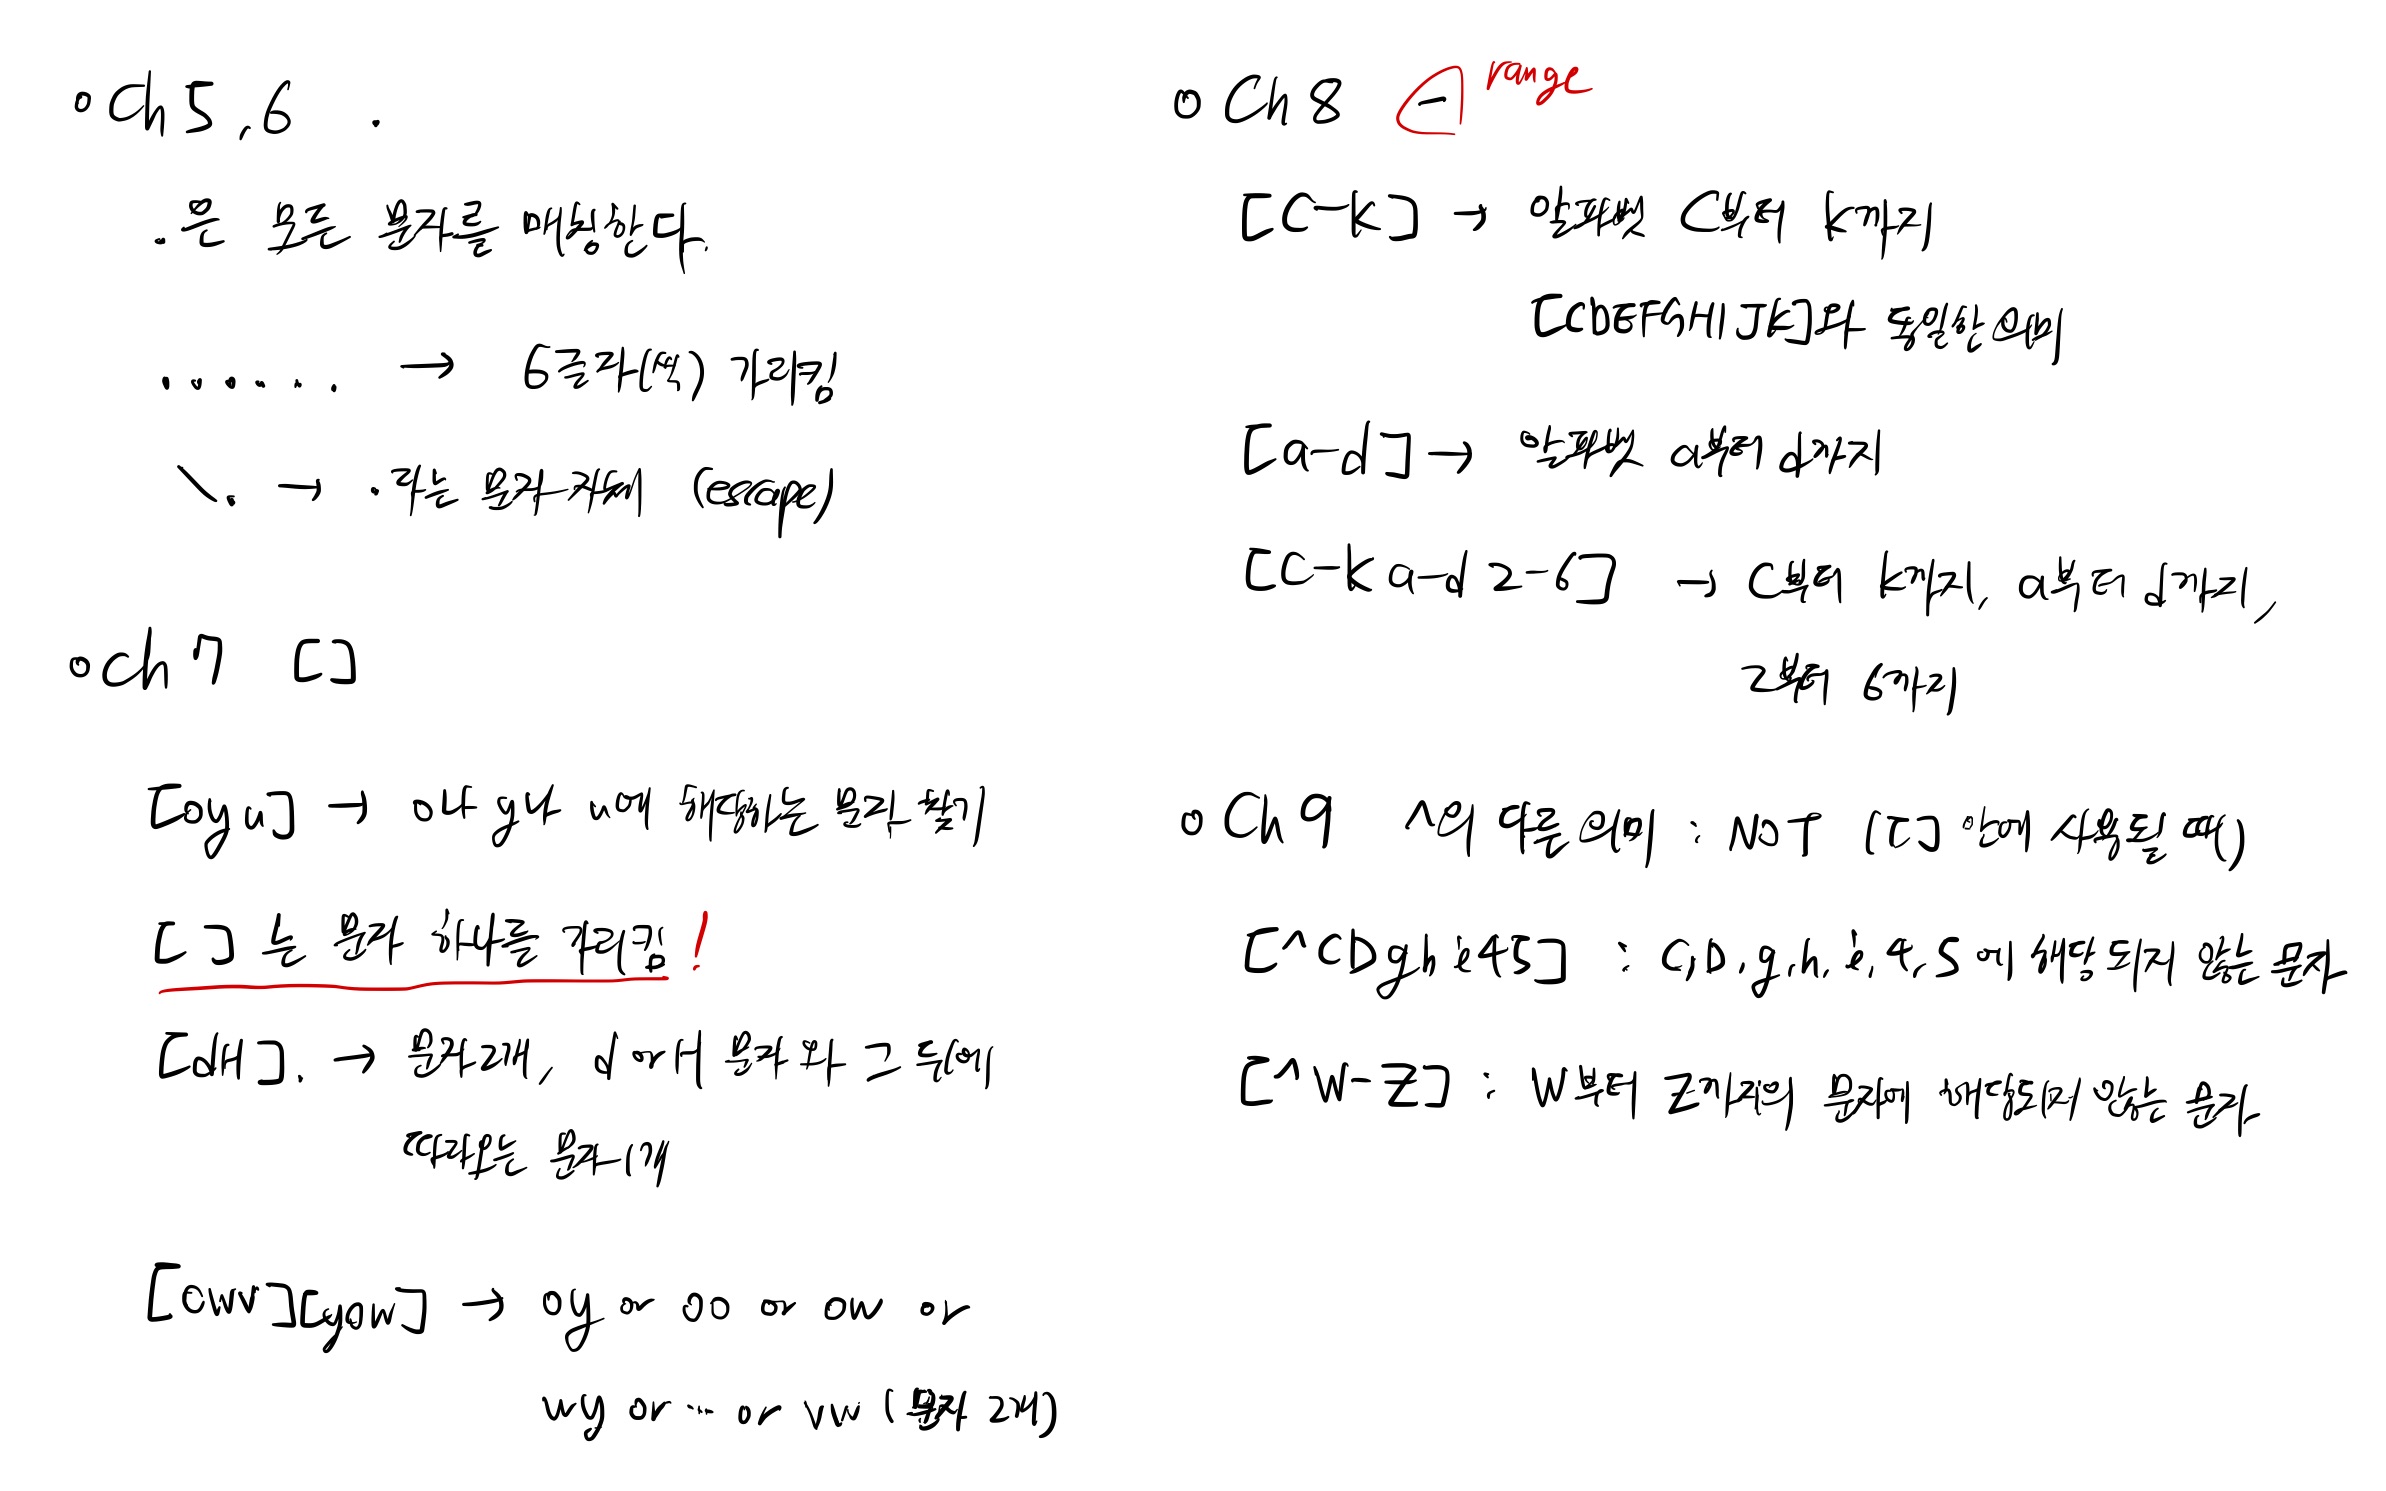 Ch 5, 6 .
.은 모든 문자를 매칭한다.
...... → 6글자(씩) 가리킴
\. → .라는 문자 자체 (escape)
Ch 7 []
[oyu] → o나 y나 u에 해당하는 문자 찾기
[ ]는 문자 하나를 가리킴!
[dH]. → 문자 2개, d or H 문자와 그 뒤에
따라오는 문자 1개
[owv][yow] → oy or oo or ow or
wy or ... or vw (문자 2개)
Ch 8 - range
[C-K] → 알파벳 C부터 K까지
[CDEFGHIJK]와 동일한 의미
[a-d] → 알파벳 a부터 d까지
[C-K a-d 2-6] → C부터 K까지, a부터 d까지,
2부터 6까지
Ch 9 ^의 다른 의미 : NOT ([] 안에 사용될 때)
[^CDghi45] : C, D, g, h, i, 4, 5에 해당되지 않는 문자
[^W-Z] : W부터 Z까지의 문자에 해당되지 않는 문자